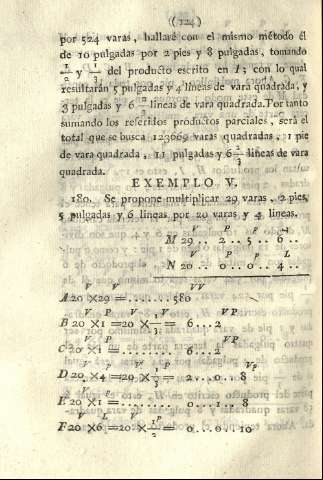 (124)
por 524 varas, hallaré con el mismo método él
de 10 pulgadas por 2 pies y 8 pulgadas, tomando
y 1/3 del producto escrito en I; con lo qual
resultarán 5 pulgadas y 4 líneas de vara quadrada, y
3 pulgadas y 6 líneas de vara quadrada. Por tanto
sumando los referidos productos parciales, será el
total que se busca 123669 varas quadradas, 1 pie
de vara quadrada, 11 pulgadas y 6 2/3 líneas de vara
quadrada.
EXEMPLO V.
180. Se propone multiplicar 29 varas, 2 pies,
5 pulgadas y 6 líneas por 20 varas y 4 líneas.
V P P L
M 29 .. 2 .. 5 .. 6 ..
V P P L
N 20 .. 0 .. 0 .. 4 ..
V V VV
A 20 × 29 = ........ 580
V P V V VP
B 20 × 1 = 20 × 1/3 = 6...2
V P
C 20 × 1 = ........ 6...2
D 20 × 4 = 20 × 1/3 = 2...0...8
E 20 × 1 = ........ 0...1...8
F 20 × 6 = 20 × 1/2 = 0...0...10